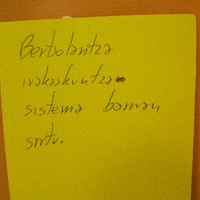 Bertsolaritza
irakaskuntza
sistema barruan
sortu.